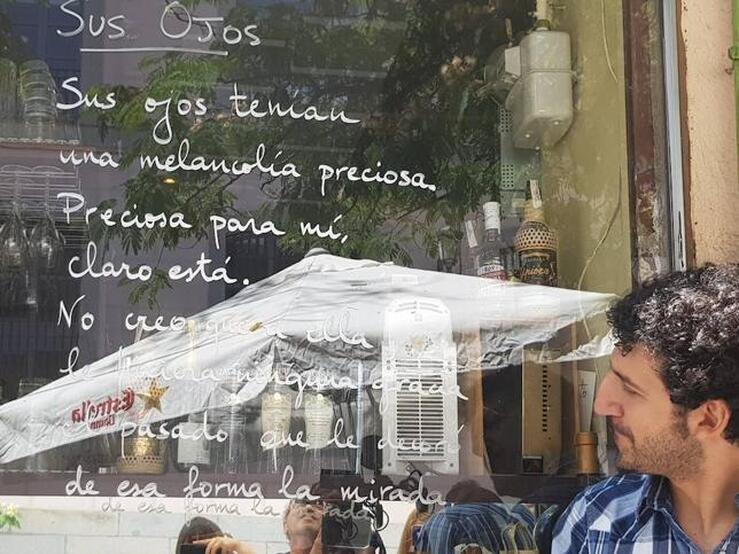 Sus Ojos
Sus ojos tenían
una melancolía preciosa.
Preciosa para mí,
claro está.
No creo que a ella
le hiciera ninguna gracia
pasado que le
de esa forma la mirada.
Estrella
Damm